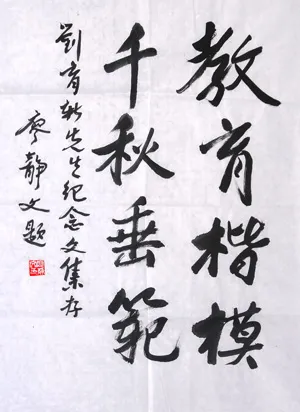 教育楷模
千秋垂範
劉育先生紀念文集存
廖靜文題